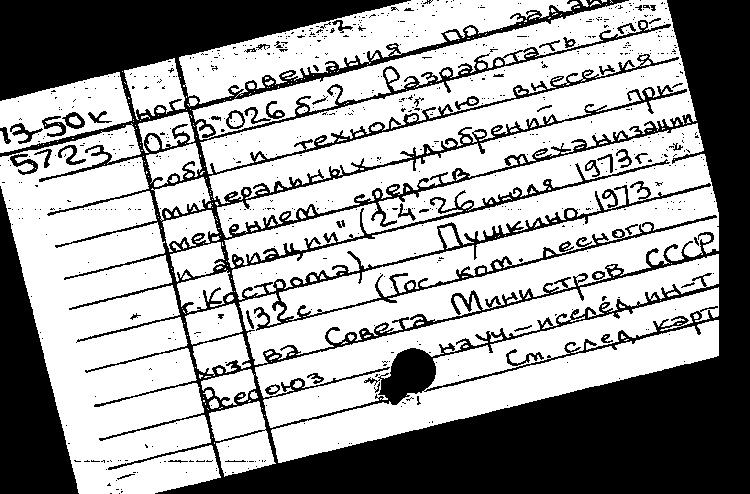 2
ного совещания по задан
13-50к 0.53.026 б-2 Разработать спо-
5723 собы и технологию внесения
минеральных удобрений с при-
менением средств механизации
и авиации". (24-26 июля 1973г.
г. Кострома). Пушкино, 1973.
132 с. (Гос. ком. лесного
хоз-ва Совета Министров СССР.
Всесоюз. науч.-исслед. ин-т
См. след. карт